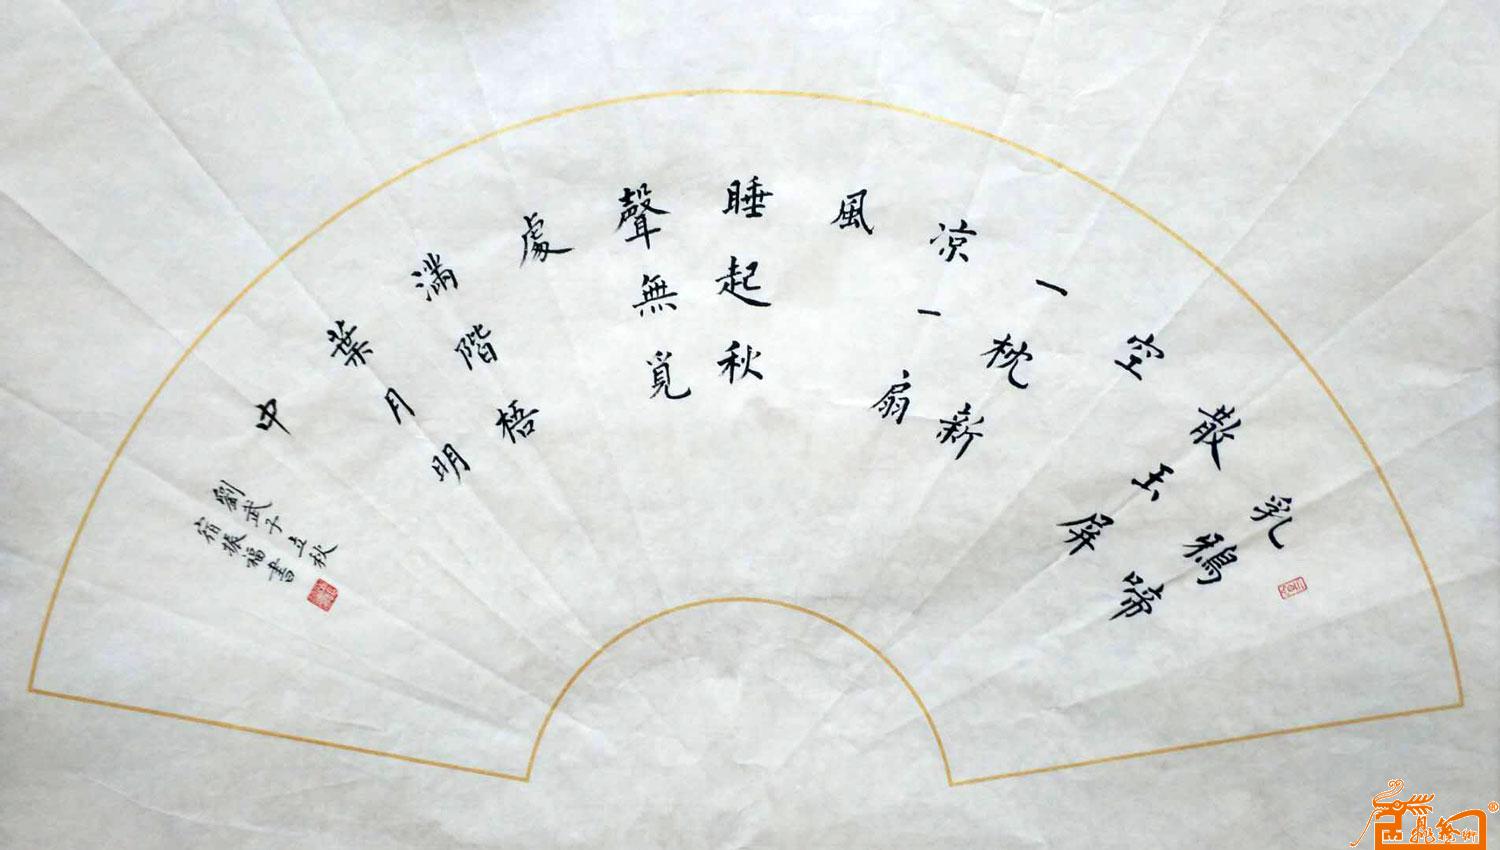 乳鴉啼
散玉屏
空
一枕新
凉一扇
風
睡起秋
聲無覓
處
滿階梧
葉月明
中
劉武子立秋
宿振福書